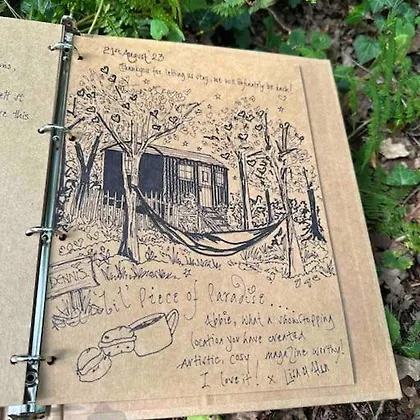 21st August 23
Thankyou for letting us stay, we will definitely be back!
DENNIS
Lil Piece of Paradise...
Abbie, what a showstopping
location you have created
artistic, cosy magazine worthy!
I love it! x